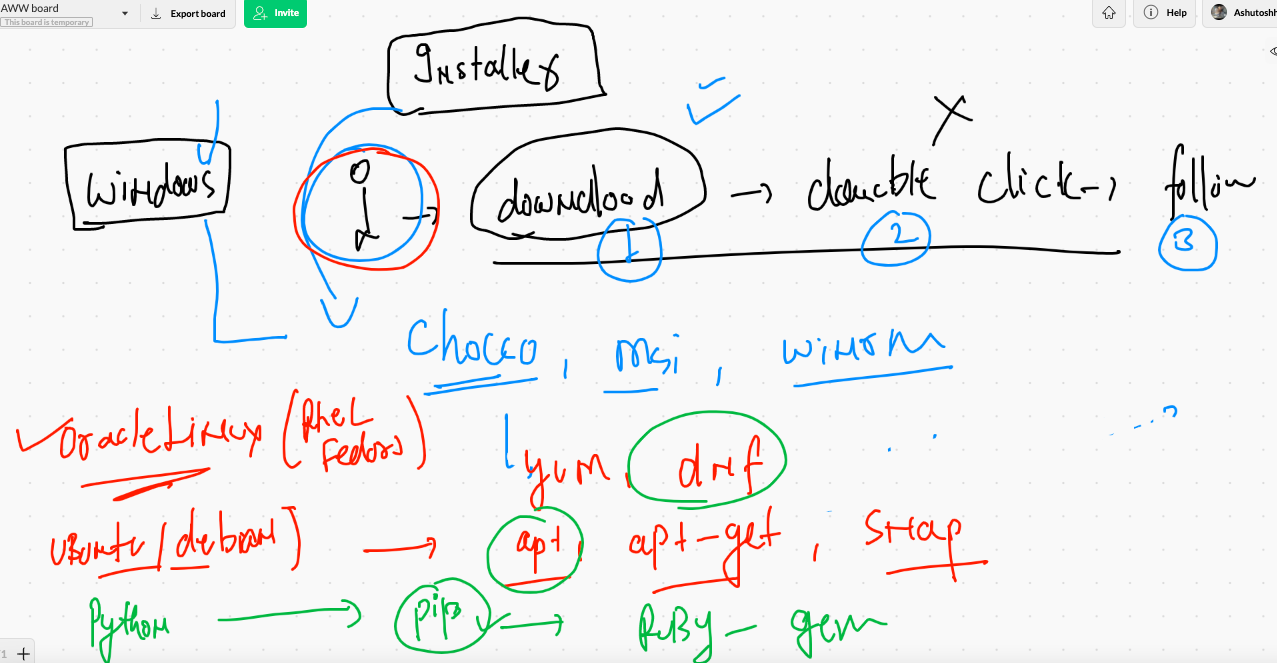 AWW board
This board is temporary
Export board
Invite
Help
Ashutoshh
Installer
Windows
download → double click → follow
1 2 3
Chocco, msi, winrm
✓ OracleLinux (RheL
Fedora)
yum, dnf
Ubuntu/debian) → apt, apt-get, snap
Python → pip → RuBy - gem
1 +